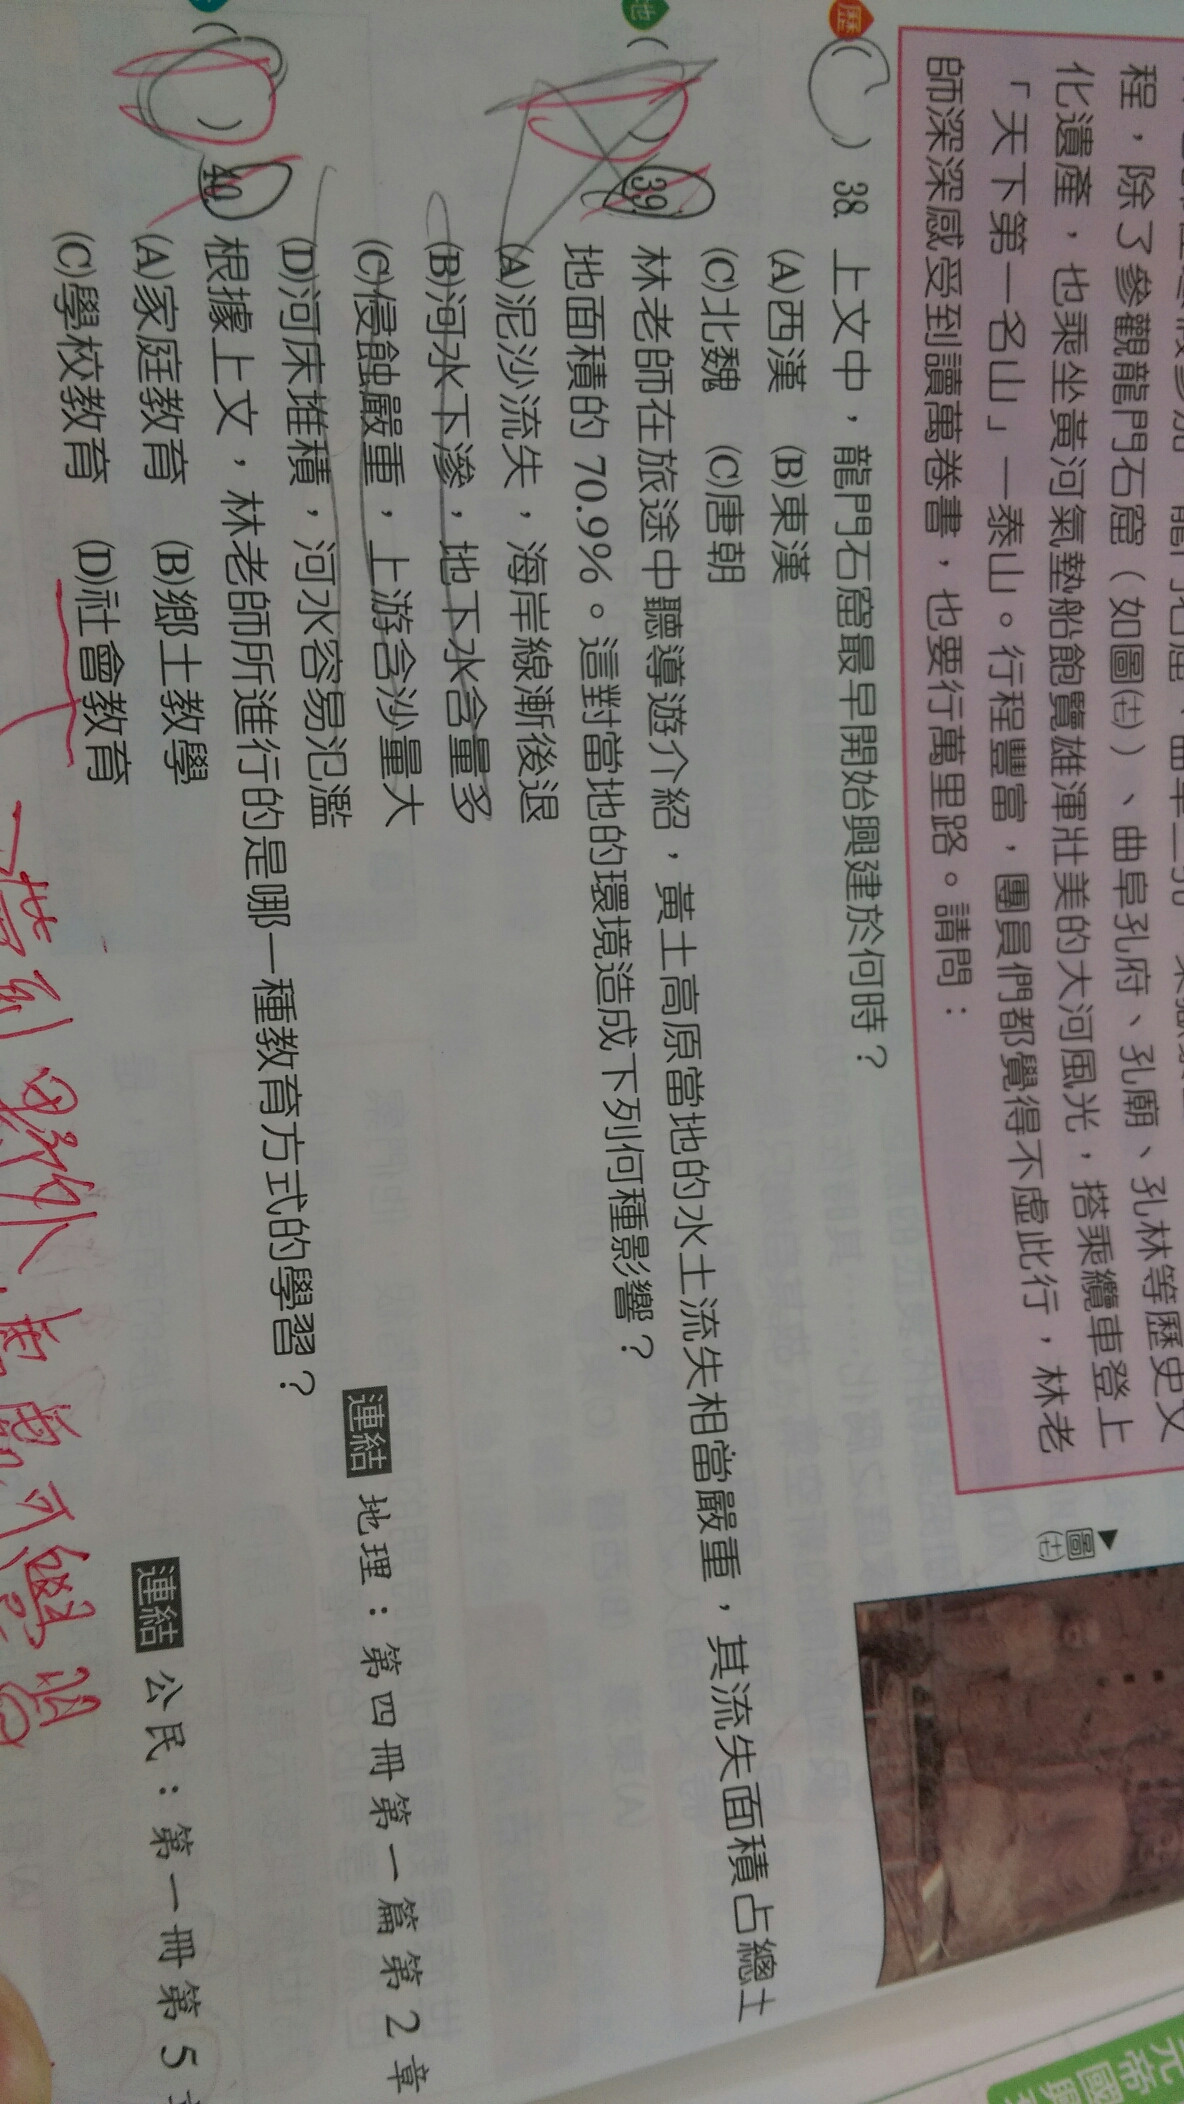 程，除了參觀龍門石窟（如圖㈦）、曲阜孔府、孔廟、孔林等歷史文
化遺產，也乘坐黃河氣墊船飽覽雄渾壯美的大河風光，搭乘纜車登上
「天下第一名山」—泰山。行程豐富，團員們都覺得不虛此行，林老
師深深感受到讀萬卷書，也要行萬里路。請問：
▲圖
歷
(C) 38. 上文中，龍門石窟最早開始興建於何時？
(A)西漢 (B)東漢
(C)北魏 (C)唐朝
地
( ) 39. 林老師在旅途中聽導遊介紹，黃土高原當地的水土流失相當嚴重，其流失面積占總土
地面積的 70.9%。這對當地的環境造成下列何種影響？
(A)泥沙流失，海岸線漸後退
(B)河水下滲，地下水含量多
(C)侵蝕嚴重，上游含沙量大
(D)河床堆積，河水容易氾濫
連結 地理：第四冊第一篇第2章
( ) 40. 根據上文，林老師所進行的是哪一種教育方式的學習？
(A)家庭教育 (B)鄉土教學
(C)學校教育 (D)社會教育
連結 公民：第一冊第5
元帝國與